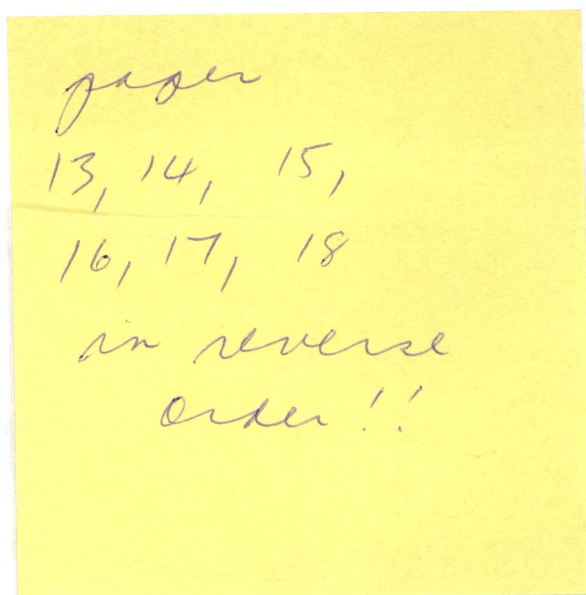 paper
13, 14, 15,
16, 17, 18
in reverse
order!!